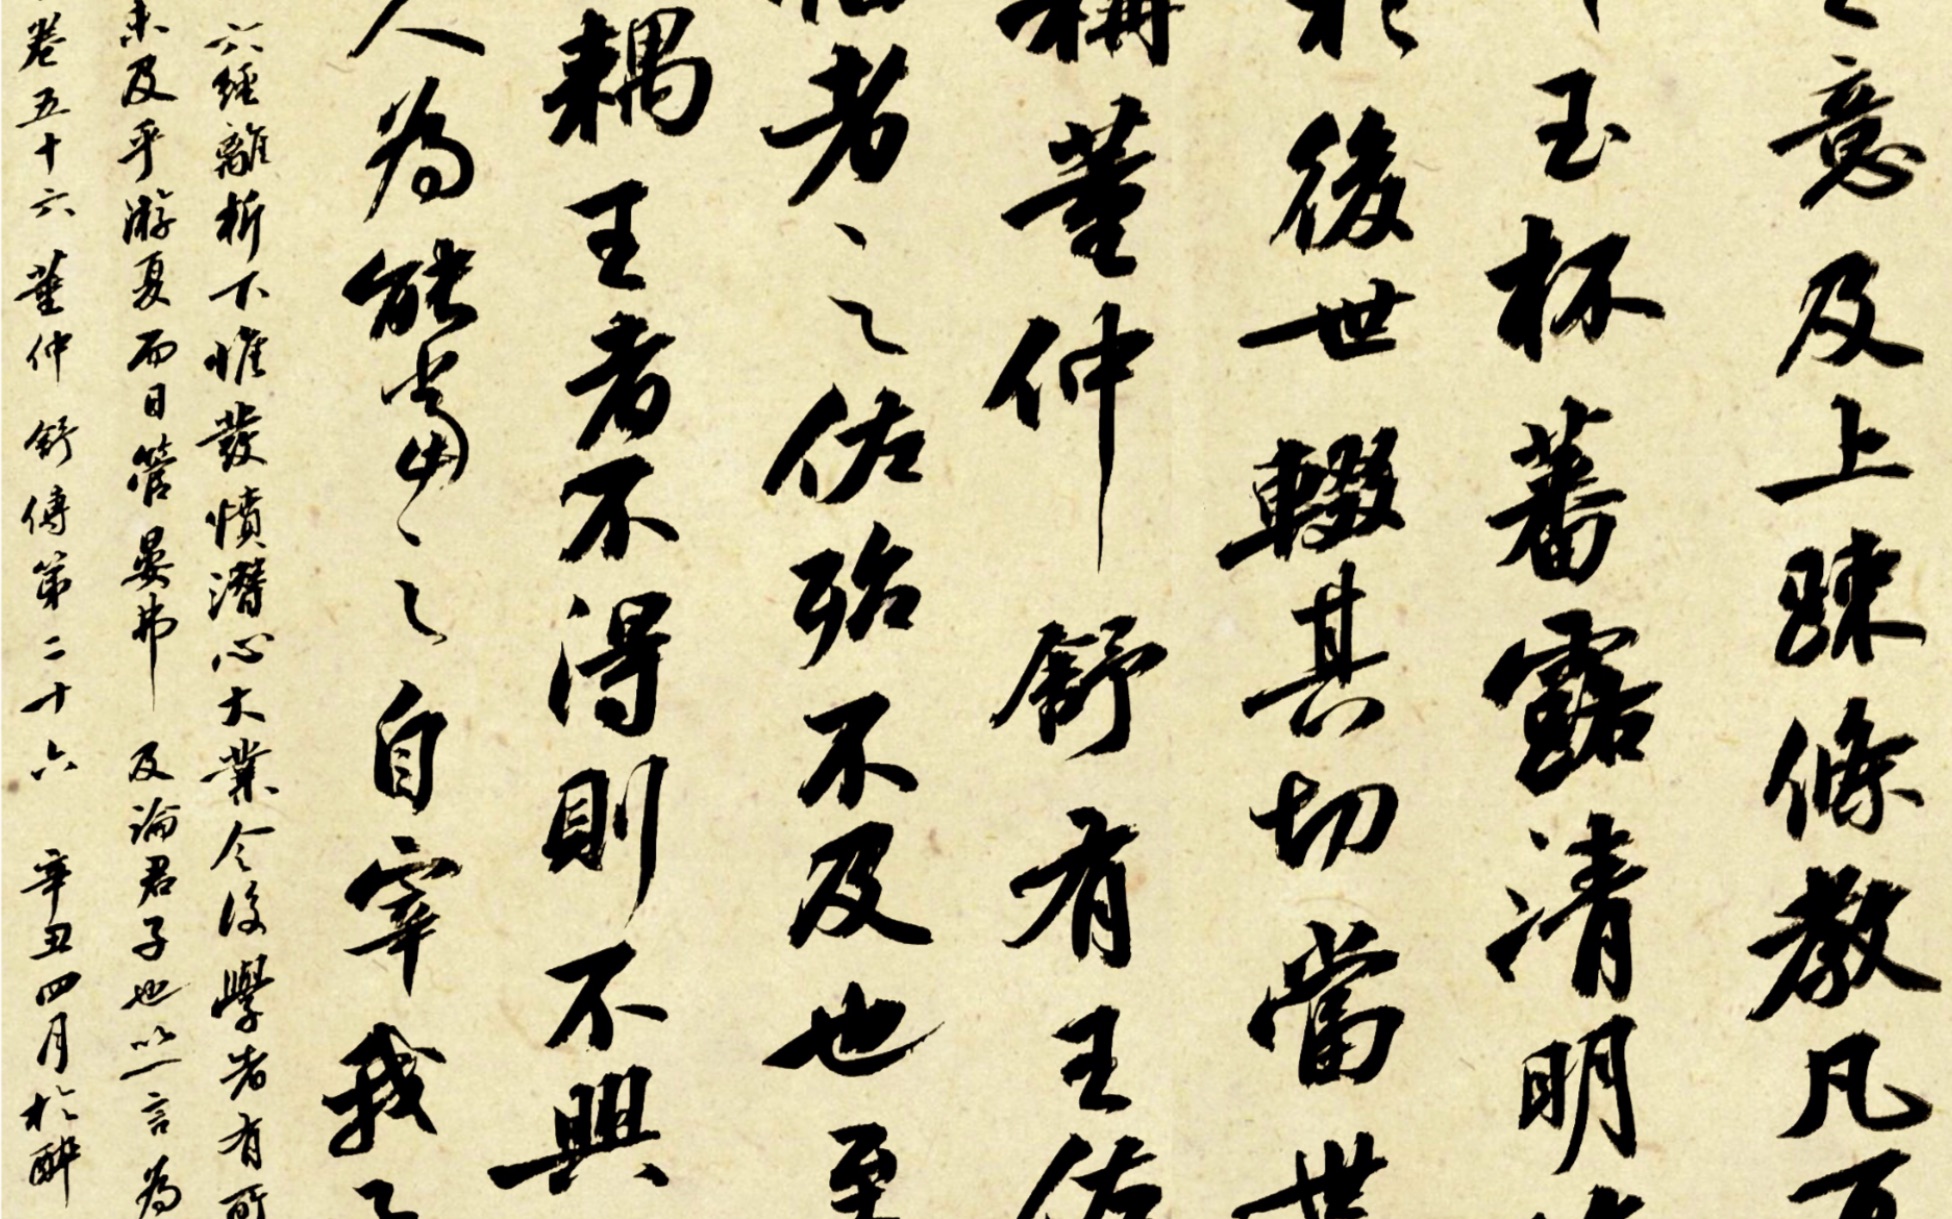 意及上疎條教凡百
玉杯蕃露清明
於後世輟其切當世
稱董仲舒有王佐
者之佐殆不及也至
耦王者不得則不興
人為能當之自宰我子
六經離析下惟發憤潛心大業令後學者有所
未及乎游夏而曰管晏弗及論君子也以言為
卷五十六董仲舒傳第二十六 辛丑四月於醉